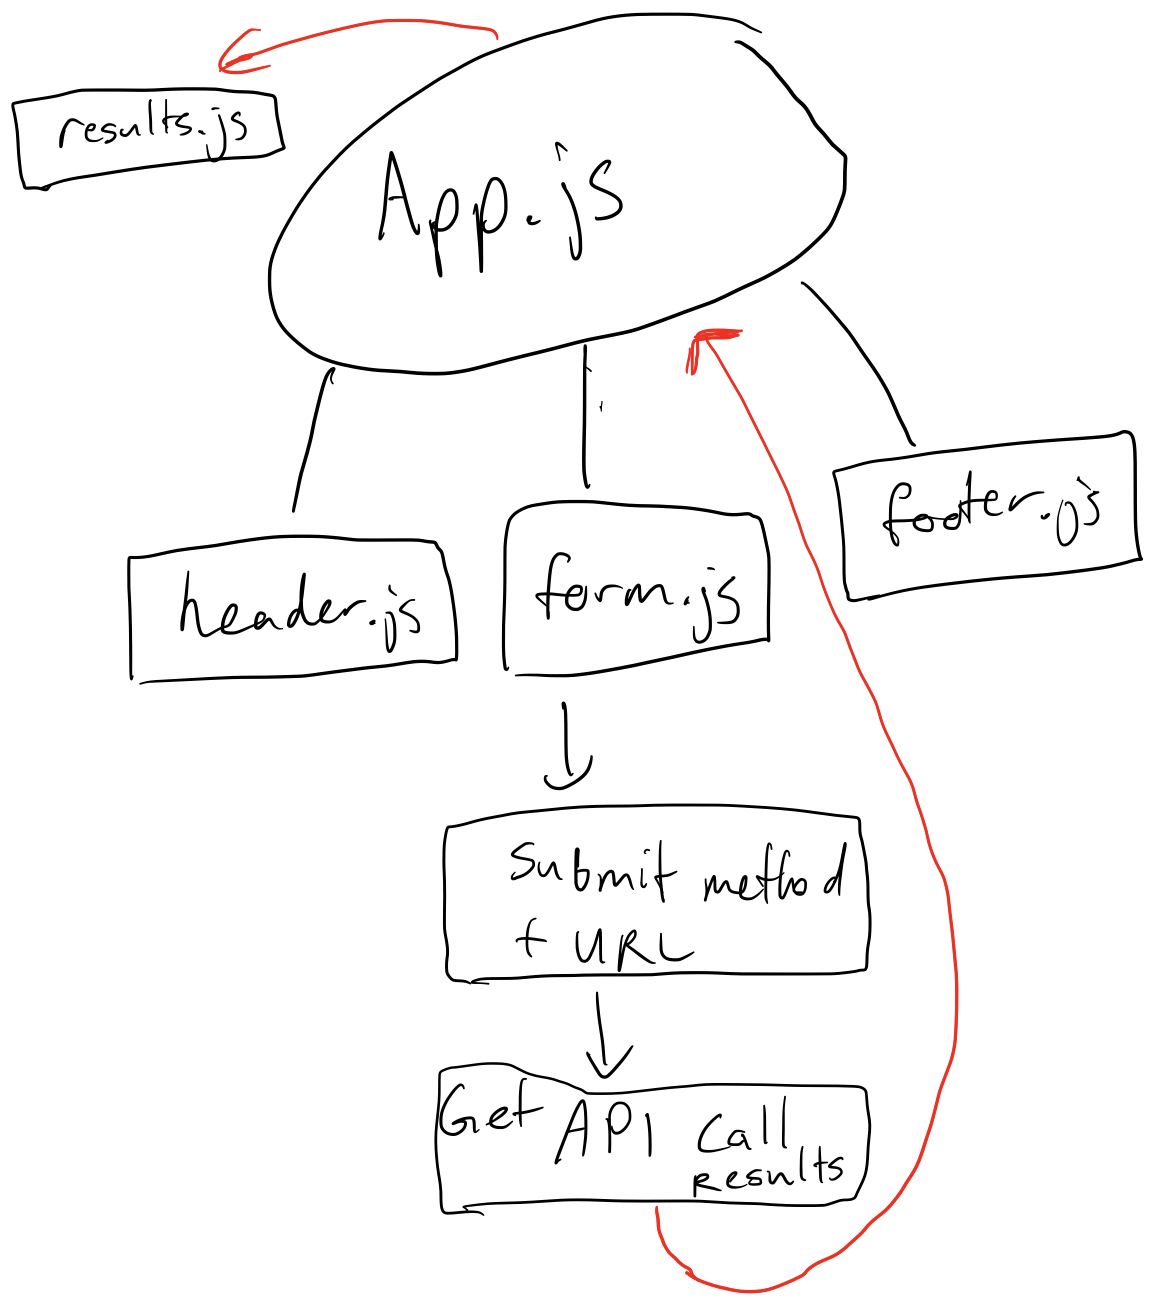 results.js
App.js
header.js
form.js
footer.js
Submit method
+ URL
Get API Call
Results